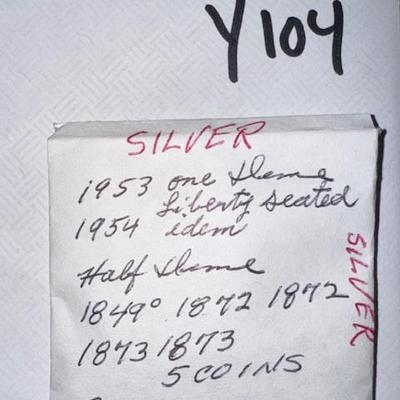 Y104
SILVER
1953 one dime
Liberty seated
1954 idem
Half dime
1849° 1872 1872
1873 1873
5 COINS
SILVER